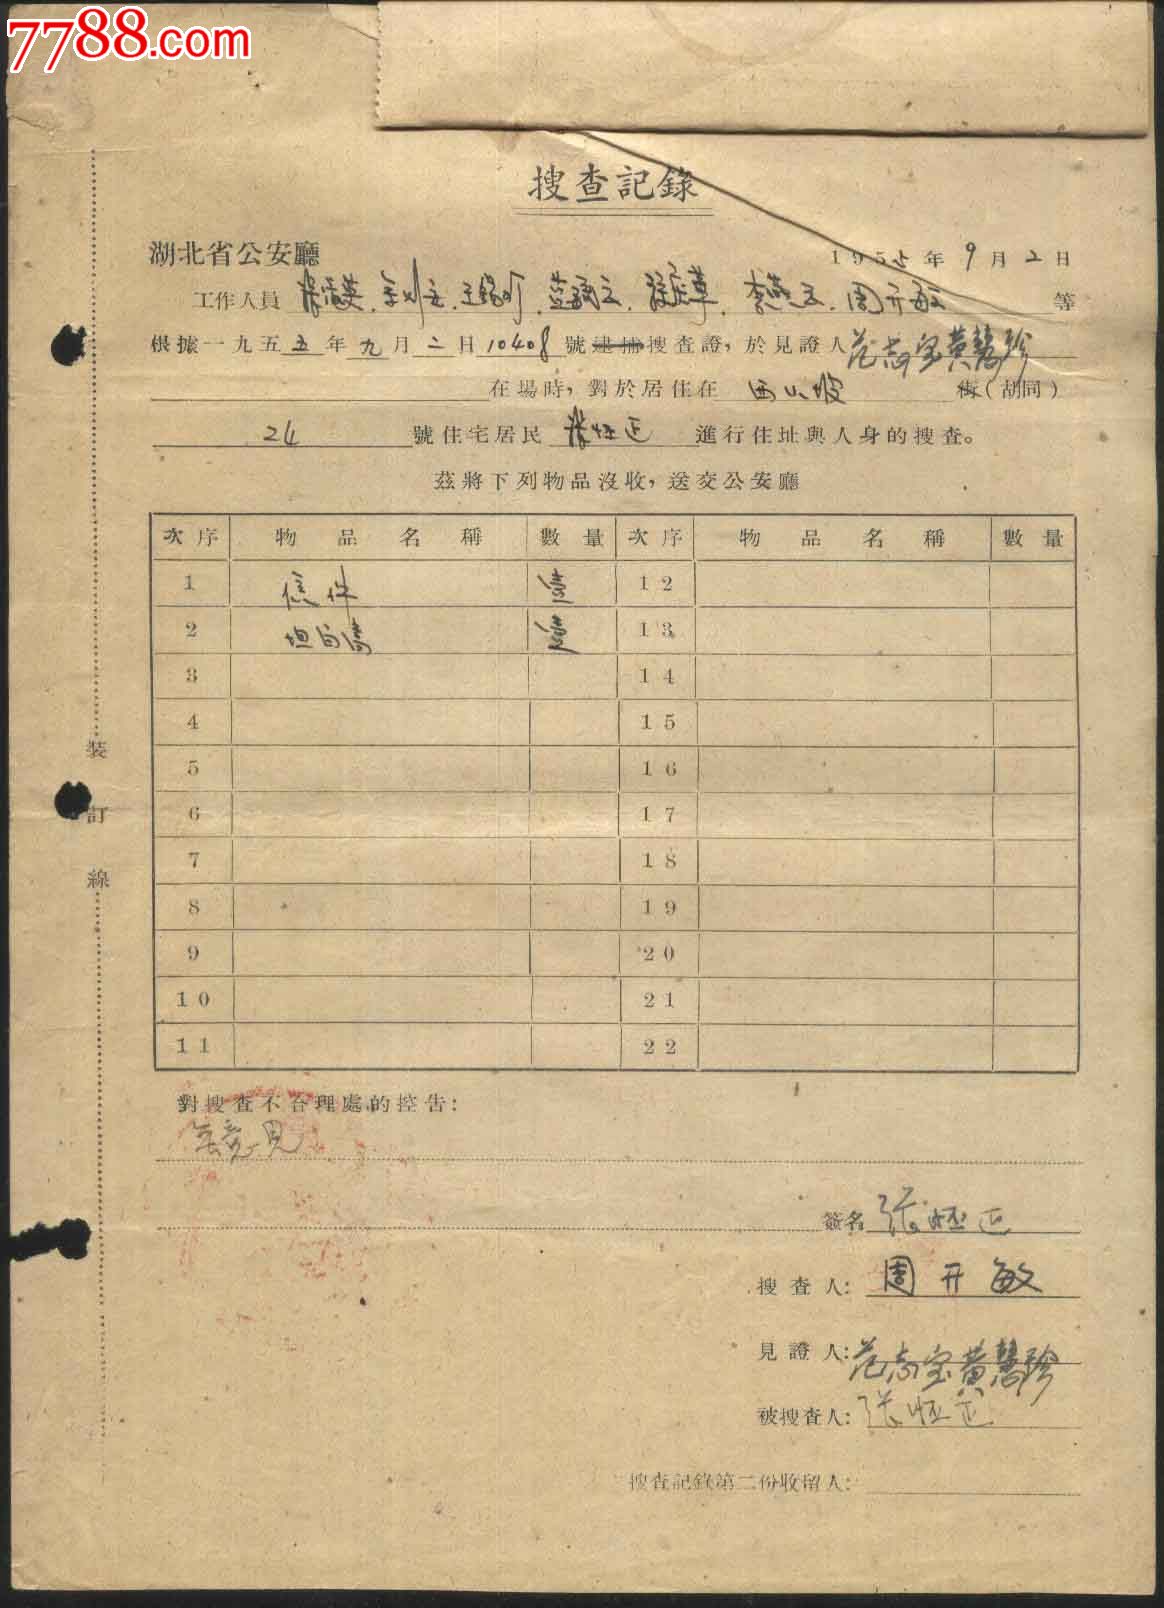 7788.com
搜查記錄
湖北省公安廳 1955年9月2日
工作人員 周开敏 等
根據一九五五年九月二日10408號逮捕搜查證，於見證人范志宝黄慧珍
在場時，對於居住在 西山坡 街（胡同）
24 號住宅居民 张恒正 進行住址與人身的搜查。
茲將下列物品沒收，送交公安廳
次序 物品名稱 數量 次序 物品名稱 數量
1 信件 壹 12
2 坦白書 壹 13
3 14
4 15
5 16
6 17
7 18
8 19
9 20
10 21
11 22
對搜查不合理處的控告：
無意見
簽名 张恒正
搜查人：周开敏
見證人：范志宝黄慧珍
被搜查人：张恒正
搜查記錄第二份收留人：
装訂線